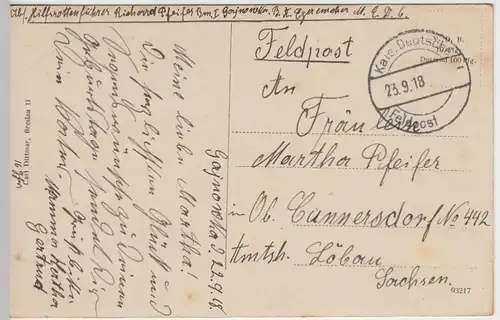 Abs. Hilfsrottenführer Richard Pfeifer Bm I Gajnowka B.K. Czeremcha M.E.D. 6.
Feldpost
Kais. Deutsche
23.9.18
Feldpost
Dutzend 100 Pfg.
An
Fräulein
Martha Pfeifer
in Ob. Cunnersdorf No 442
Amtsh. Löbau
Sachsen.
03217
Gajnowka d. 22.9.18.
Meine liebe Martha!
Die herzlichsten Glück und
Segenswünsche zu Deinem
Geburtstage sendet Dir
Dein
Carl Dittmar, Breslau 11